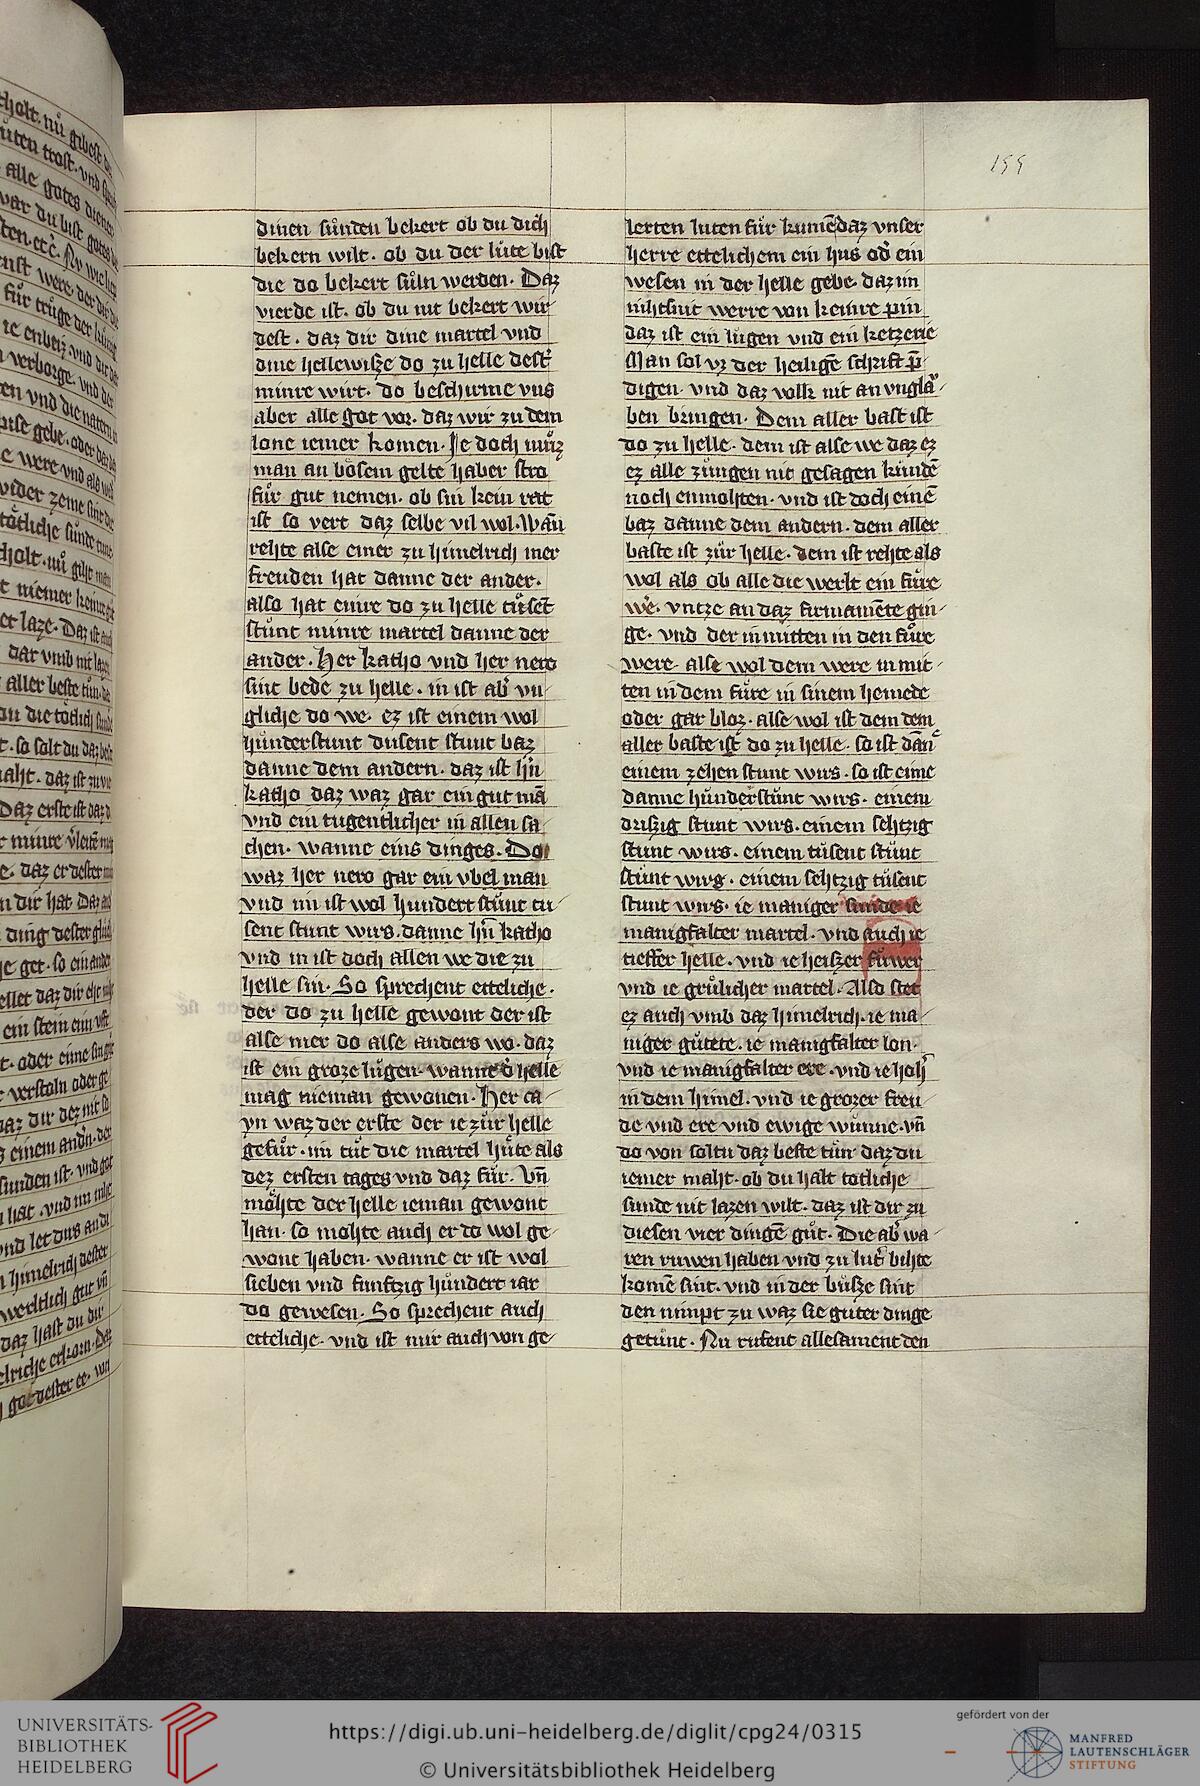 155
dinen sůnden bekert ob du dich
bekern wilt. ob du der lůte bist
die do bekert sůln werden. Daz
vierde ist. ob du nit bekert wir-
dest. daz dir dine martel vnd
dine hellewisze do zu helle dest'
minre wirt. do beschirme vns
aber alle got vor. daz wir zu dem
lone iemer komen. Je doch můz
man an bôsem gelte haber stro
fůr gut nemen. ob sin kein rat
ist so vert daz selbe vil wol. Wañ
rehte alse einer zu himelrich mer
freuden hat danne der ander.
also hat einre do zu helle tůsēt
stůnt minre martel danne der
ander. Her katho vnd her nero
sint bede zu helle. in ist ab' vn
gliche do we. ez ist einem wol
hůnderstunt dusent stunt baz
danne dem andern. daz ist h'n
katho daz waz gar ein gut mā
vnd ein tugentlicher in allen sa
chen. wanne eins dinges. Do
waz her nero gar ein vbel man
vnd im ist wol hundert stůnt tu-
sent stunt wirs. danne hn̄ katho
vnd in ist doch allen we die zu
helle sin. So sprechent etteliche.
der do zu helle gewont der ist
alse mer do alse anders wo. daz
ist ein groze lůgen. wanne d' helle
mag nieman gewonen. Her ca-
yn waz der erste der ie zůr helle
gefůr. im tůt die martel hůte als
dez ersten tages vnd daz fůr. Vn̄
môhte der helle ieman gewont
han. so mohte auch er do wol ge-
wont haben. wanne er ist wol
sieben vnd funftzig hůndert iar
do gewesen. So sprechent auch
etteliche. vnd ist mir auch von ge-
lerten luten fůr kumē daz vnser
herre ettelichem ein hus od' ein
wesen in der helle gebe. daz im
nihtsnit werre von keinre pin
daz ist ein lůgen vnd ein ketzerie
Man sol vz der heiligē schrift p̄-
digen. vnd daz volk nit an vnglå-
ben bringen. Dem aller bast ist
do zu helle. dem ist alse we daz ez
ez alle zůngen nit gesagen kůndē
noch enmohten. vnd ist doch einē
baz danne dem andern. dem aller
baste ist zůr helle. dem ist rehte als
wol als ob alle die werlt ein fůre
we'. vntze an daz firmamēte gin-
ge. vnd der inmitten in den fůre
were. alse wol dem were in mit-
ten in dem fůre in sinem hemede
oder gar bloz. alse wol ist dem dem
aller baste ist do zu helle. so ist dāne
einem zehen stunt wirs. so ist eime
danne hůnderstůnt wirs. einem
driszig stunt wirs. einem sehtzig
stunt wirs. einem tůsent stůnt
stůnt wirs. einem sehtzig tůsent
stunt wirs. ie maniger sunde ie
manigfalter martel. vnd auch ie
tieffer helle. vnd ie heiszer fůwer
vnd ie grůlicher martel. Also stet
ez auch vmb daz himelrich. ie ma-
niger gůtete. ie manigfalter lon.
vnd ie manigfalter ere. vnd ie hoh'
in dem himel. vnd ie grozer freu-
de vnd ere vnd ewige wůnne. vn̄
do von soltu daz beste tůn daz du
iemer maht. ob du halt totliche
sunde nit lazen wilt. daz ist dir zu
diesen vier dingē gůt. Die ab' wa
ren ruwen haben vnd zu lut' bihte
komē sint. vnd in der bůsze sint
den nimpt zu waz sie guter dinge
getůnt. Nu rufent allesament den
UNIVERSITÄTS-
BIBLIOTHEK
HEIDELBERG
https://digi.ub.uni-heidelberg.de/diglit/cpg24/0315
© Universitätsbibliothek Heidelberg
gefördert von der
MANFRED
LAUTENSCHLÄGER
STIFTUNG